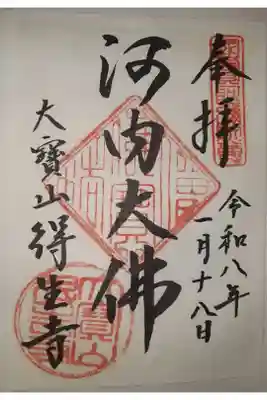 奉拝
令和八年
一月十八日
河内大佛
大寶山得生寺